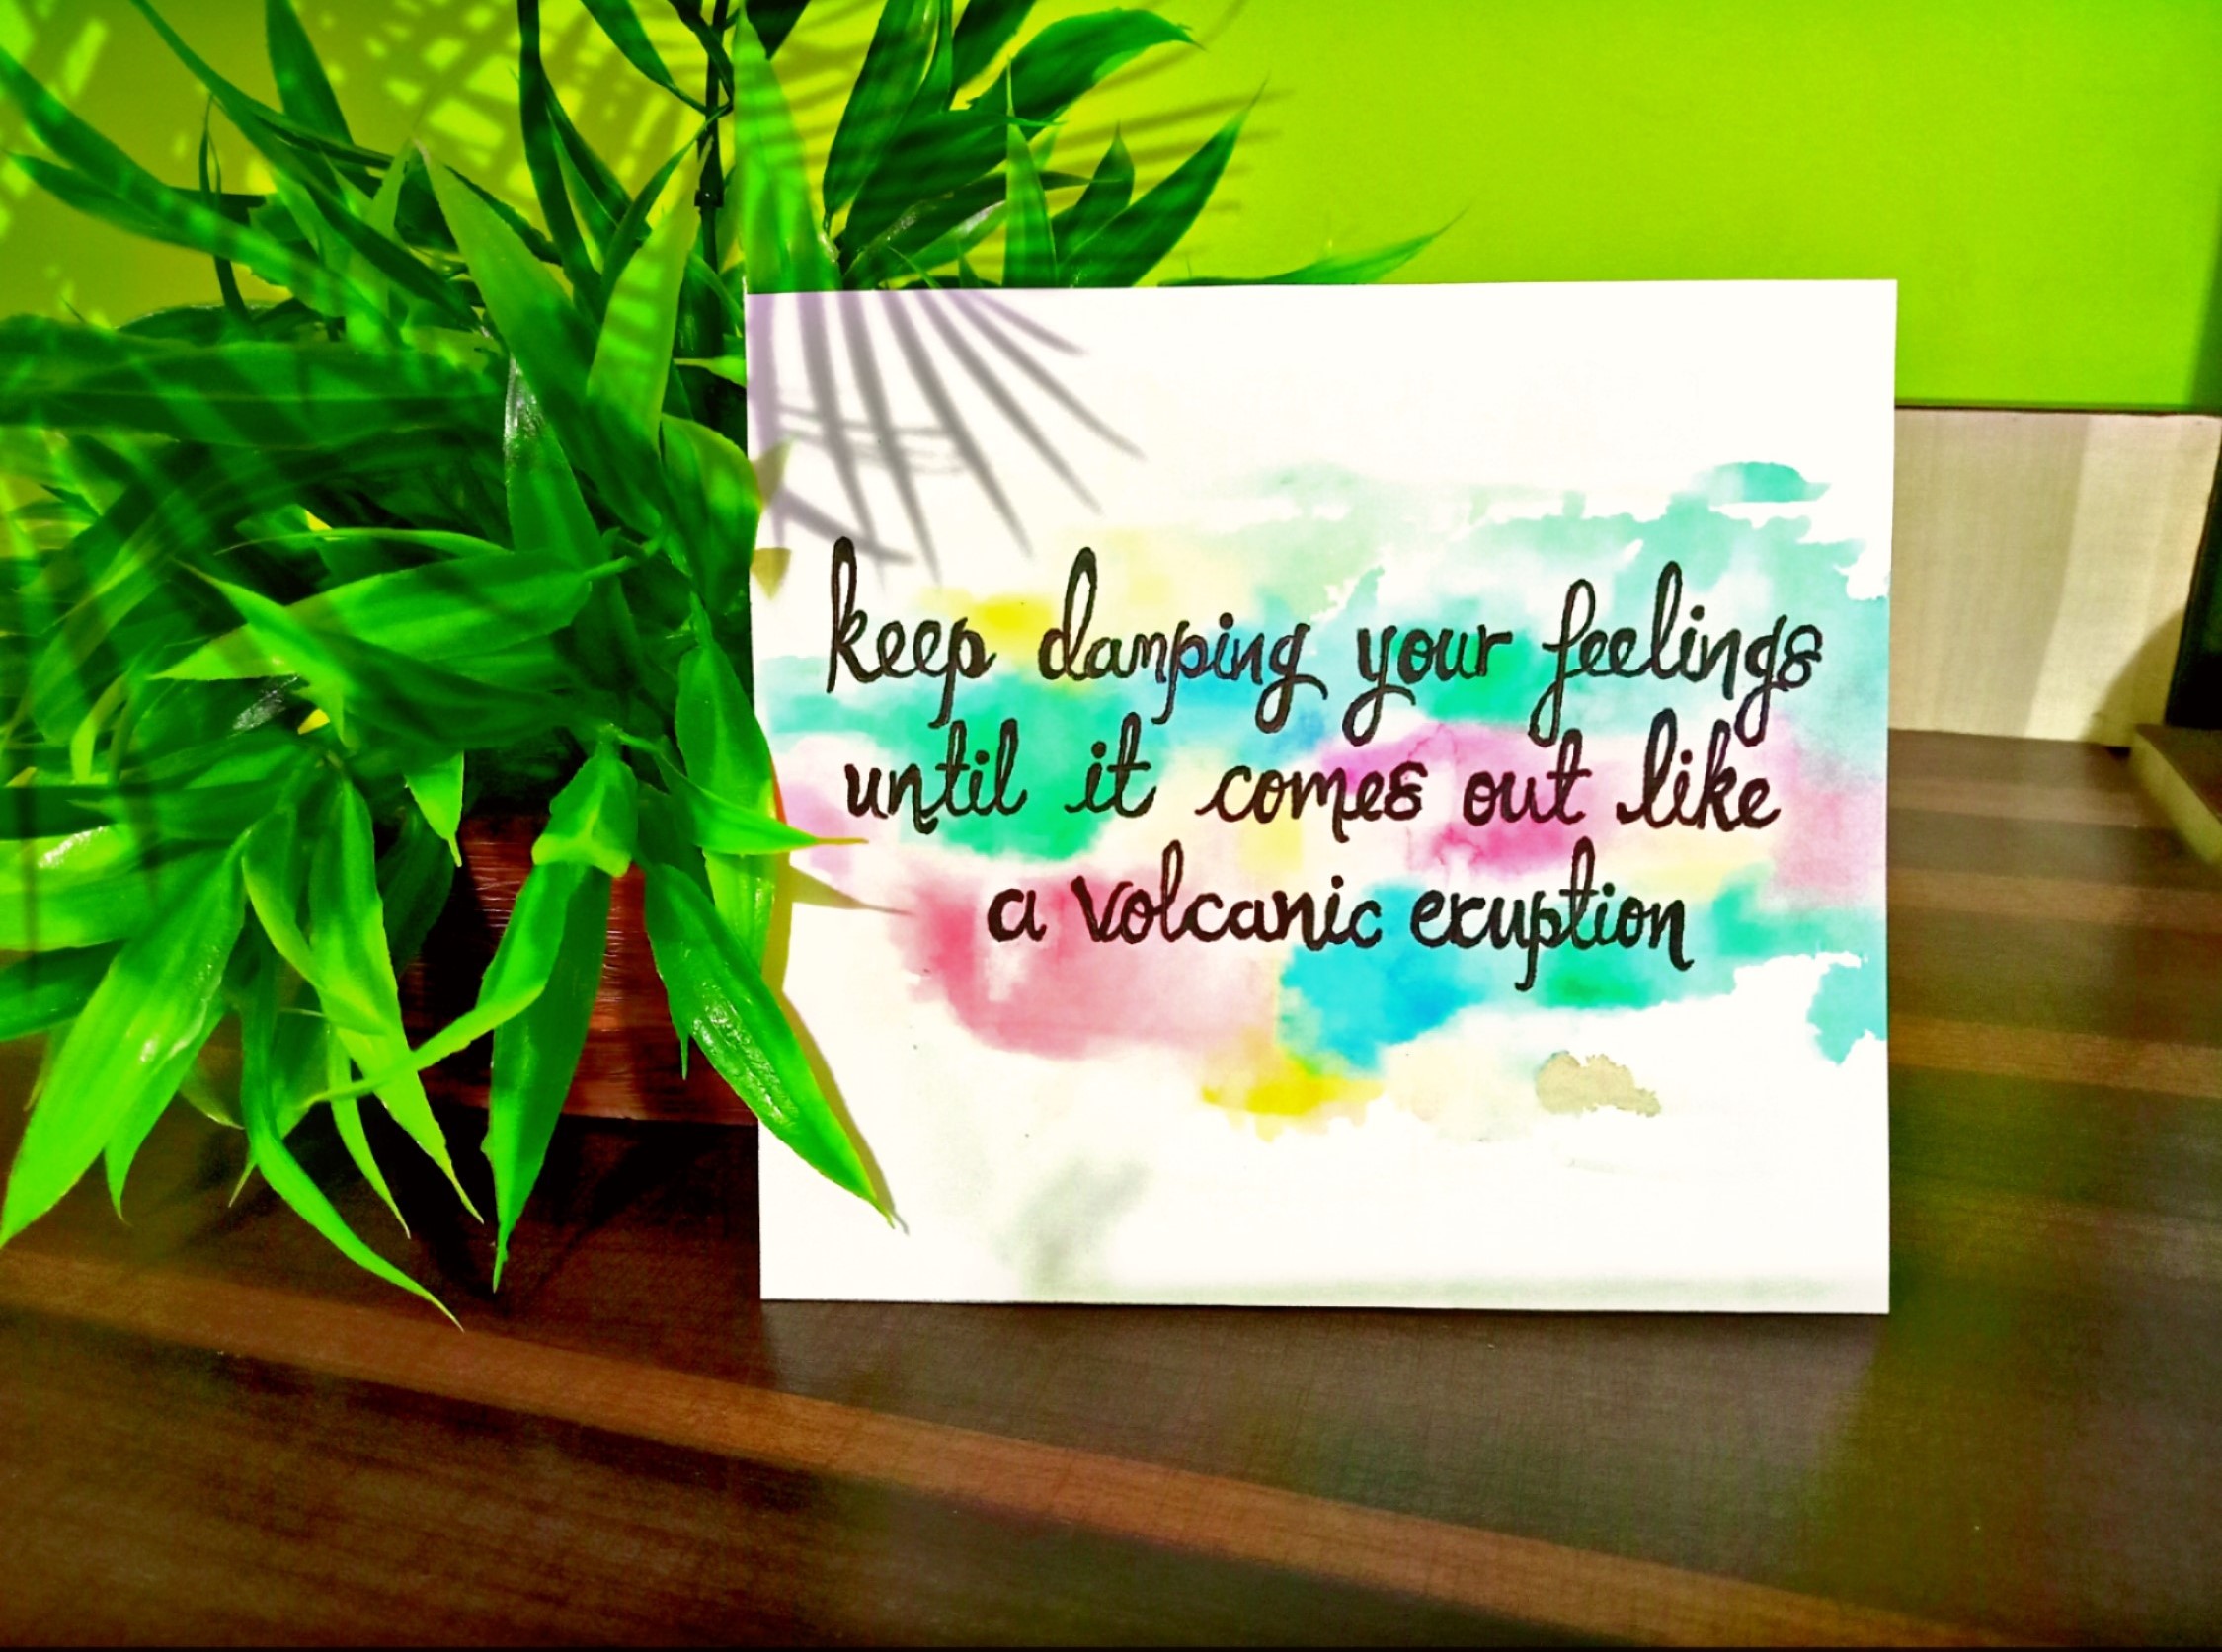 keep damping your feelings
until it comes out like
a volcanic eruption